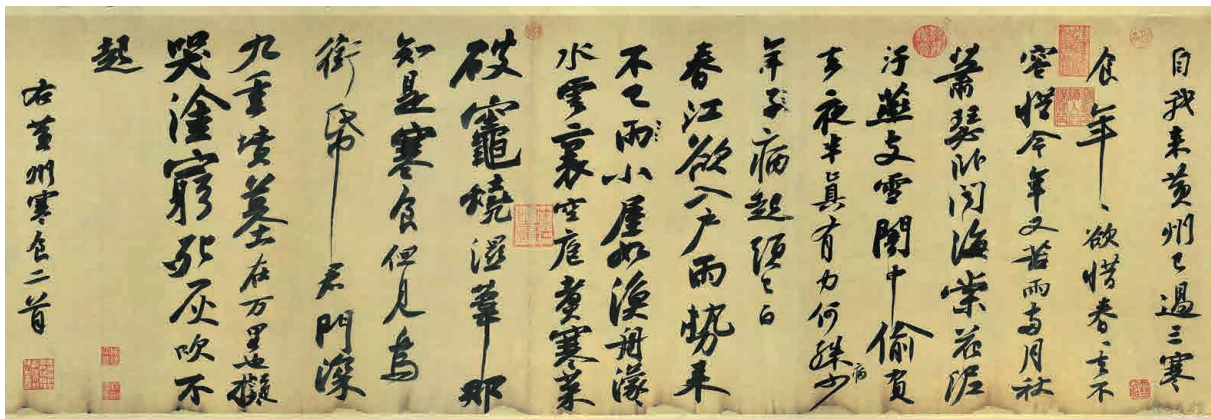 自我来黄州已過三寒
食年〻欲惜春〻去不
容惜今年又苦雨兩月秋
蕭瑟卧聞海棠花泥
汙燕支雪闇中偷負
去夜半真有力何殊少病
年子病起頭已白
春江欲入户雨勢来
不已雨小屋如漁舟濛
水雲裏空庖煮寒菜
破竈燒溼葦那
知是寒食但見烏
銜帋君門深
九重墳墓在万里也擬
哭塗窮死灰吹不
起
右黄州寒食二首